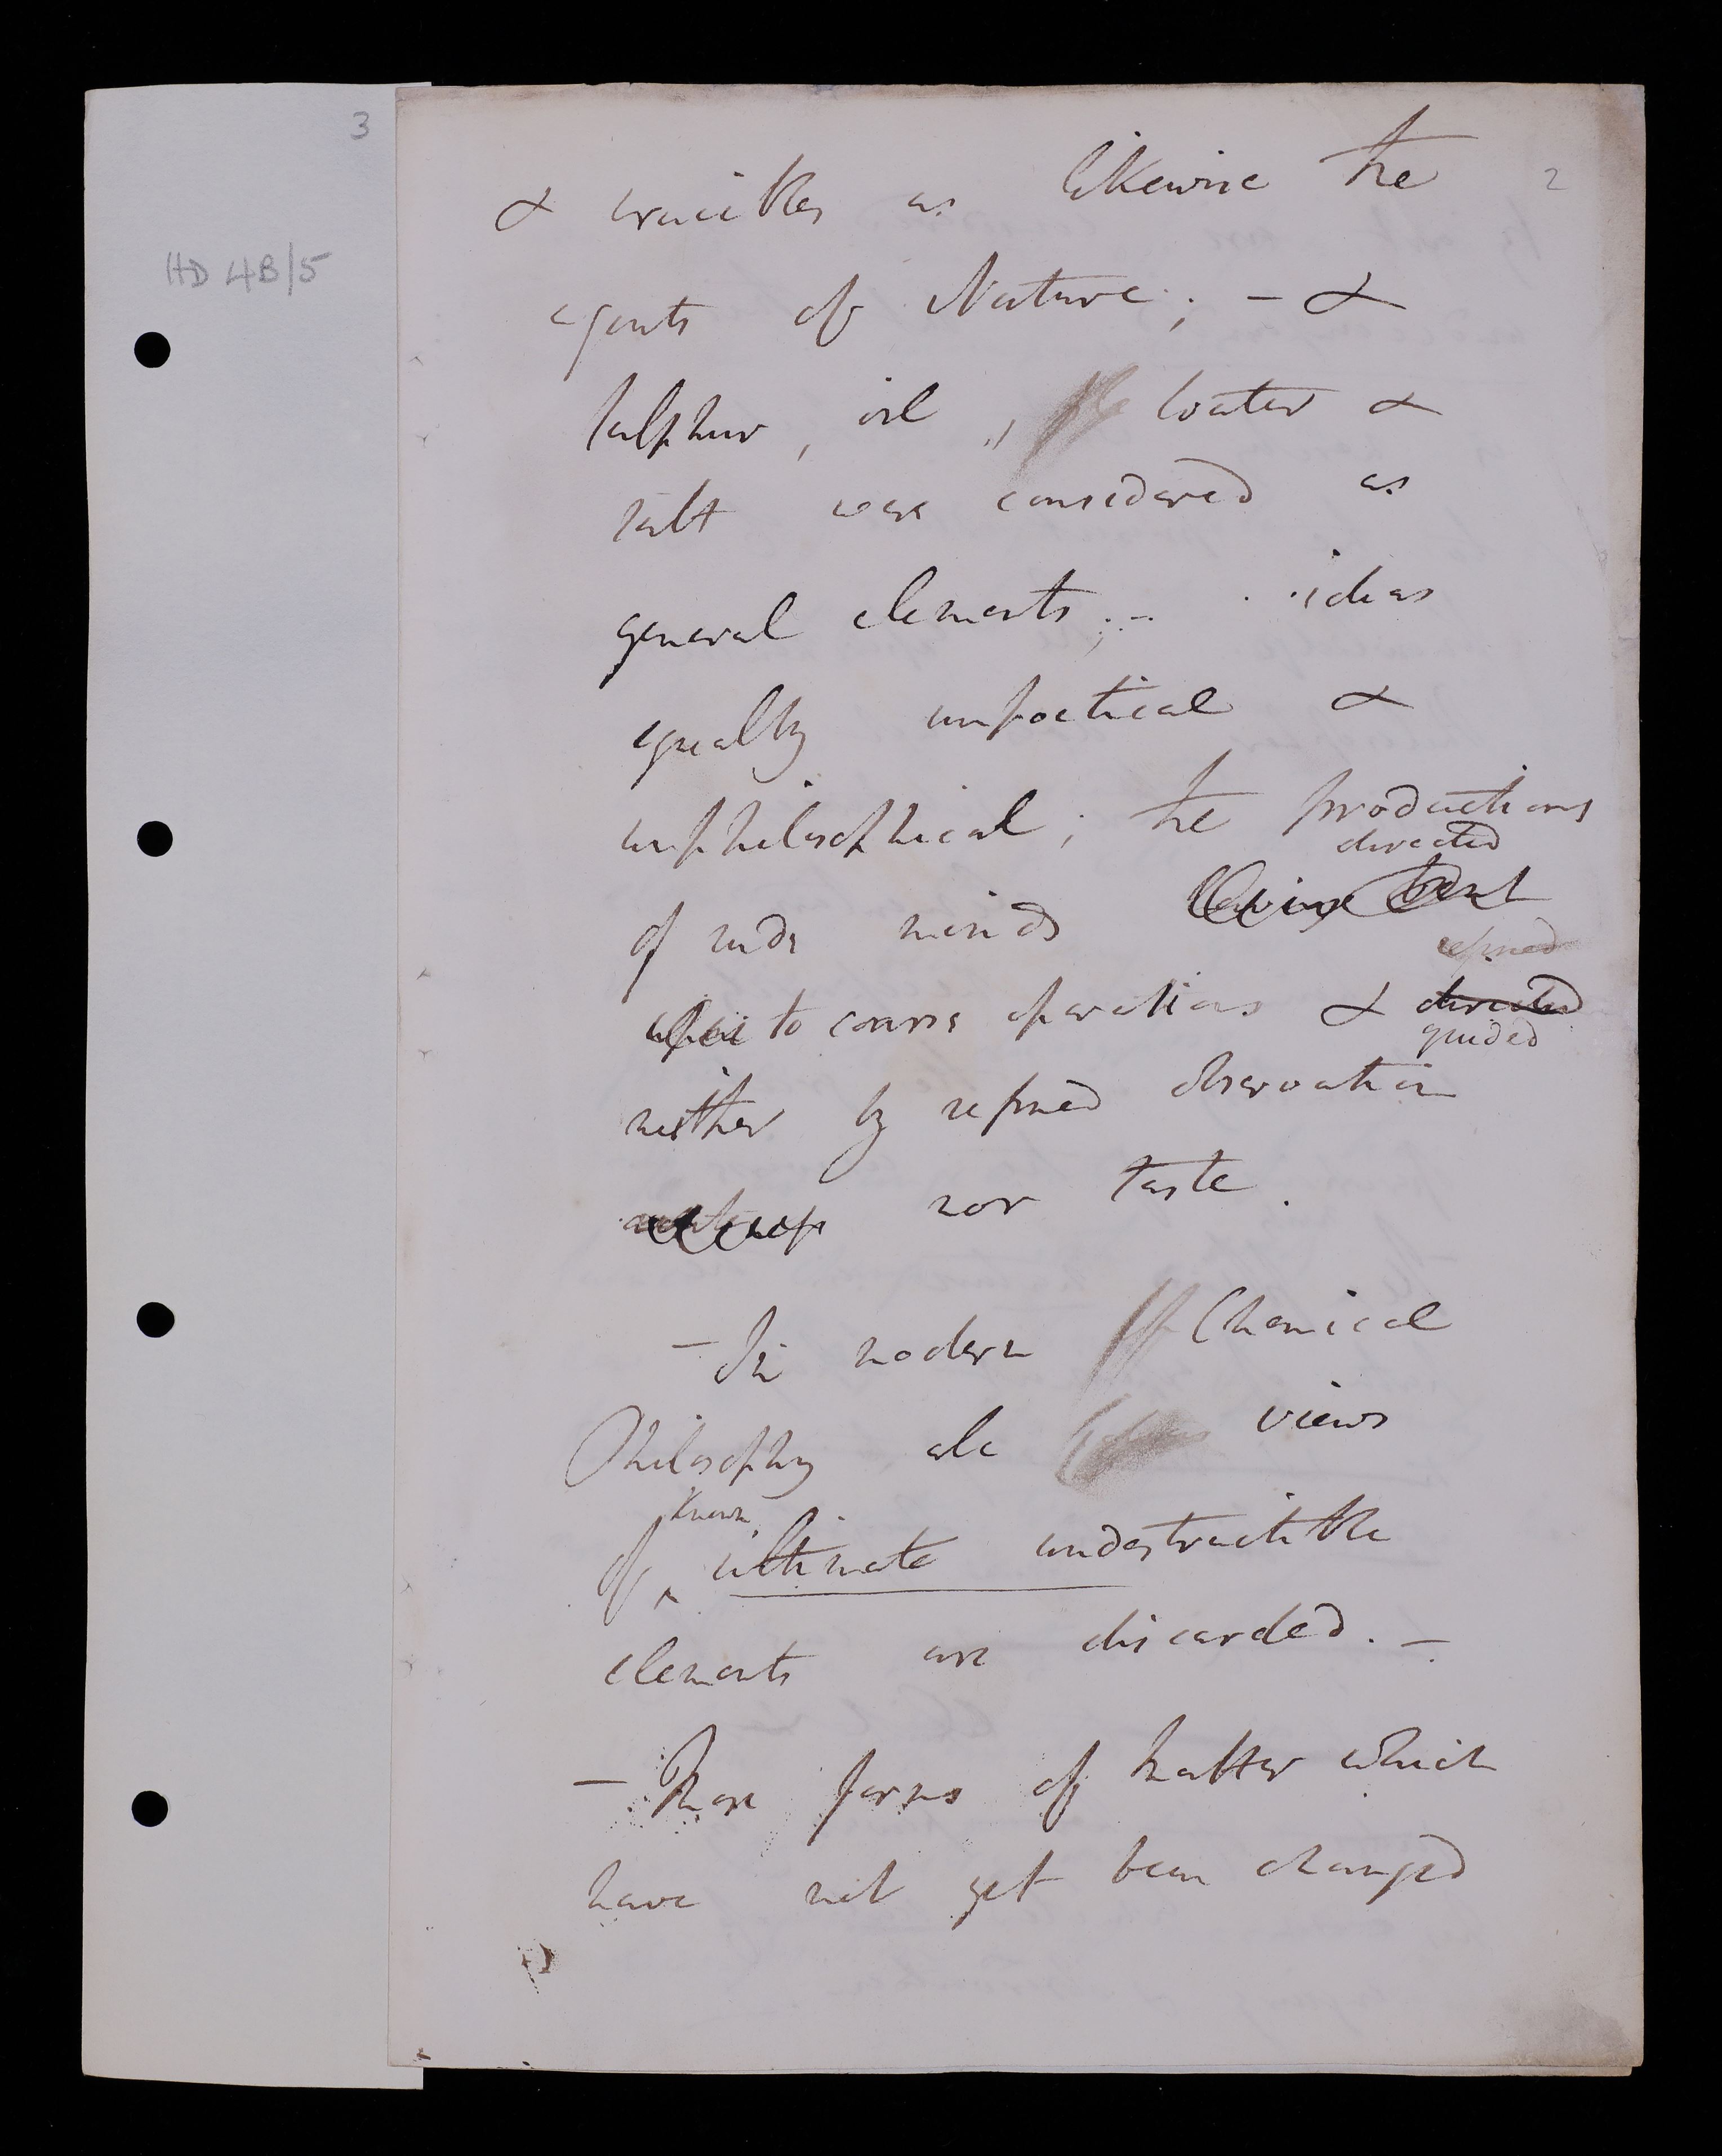 3
HD 4B/5
2
& crucibles as likewise the
agents of Nature; - &
sulphur, oil, water &
salt were considered as
general elements; - ideas
equally unpoetical &
unphilosophical; the productions
directed
of rude minds having bent
refined
upon to coarse operations & directed
guided
neither by refined observation
nor taste.
- In modern Chemical
Philosophy all views
known
of ^ ultimate undestructible
elements are discarded. -
- Those forms of matter which
have not yet been changed